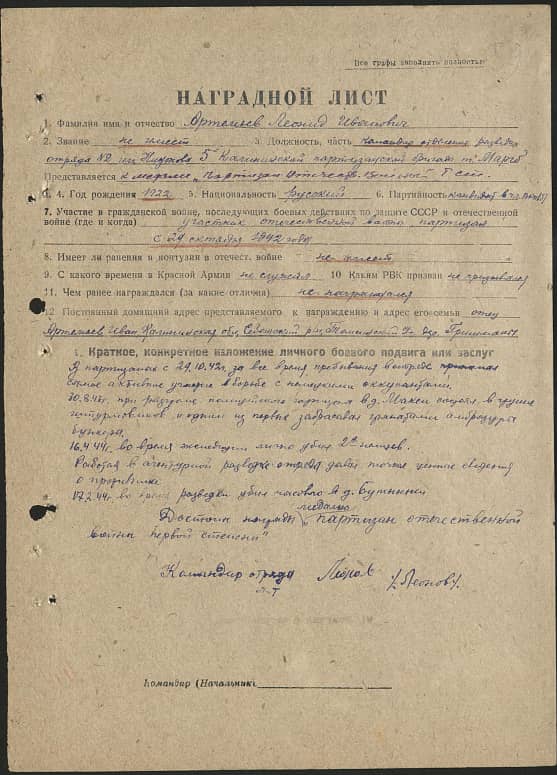 Все графы заполнять полностью
НАГРАДНОЙ ЛИСТ
1. Фамилия имя и отчество Артемьев Леонид Иванович
2. Звание не имеет 3 Должность, часть командир отделения развед
отряда №2 им 5й Калининской партизанской бригады т.
Представляется к медали, партизан Отечеств. войны I ст.
4. Год рождения 1922 5. Национальность русский 6. Партийность кандидат в
7. Участие в гражданской войне, последующих боевых действиях по защите СССР и отечественной
войне (где и когда) участник отечественной войны партизан
с 29 октября 1942 года
8. Имеет ли ранения и контузии в отечест. войне не имеет
9. С какого времени в Красной Армии не служил 10 Каким РВК призван не призывался
11. Чем ранее награждался (за какие отличия) не награждался
12 Постоянный домашний адрес представляемого к награждению и адрес его семьи отец
Артемьев Иван Калининская обл
1. Краткое, конкретное изложение личного боевого подвига или заслуг
В партизанах с 29.10.42г. за все время пребывания в отряде принимал
самое активное участие в борьбе с немецкими оккупантами.
при разгроме гарнизона в д. в группе
штурмовиков и одним из первых забросал гранатами амбразуры
бункера.
16.4.44г. во время лично убил 2х немцев.
Работая в агентурной разведке отряда давал точные ценные сведения
о противнике
17.2.44г. во время разведки убил часового в д.
медали
Достоин награды "партизан отечественной
войны первой степени"
Командир отряда Леонов /Леонов/.
Командир (Начальник)